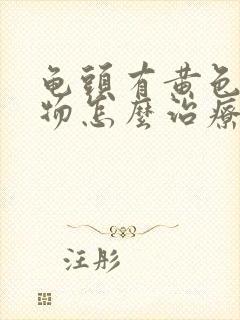 龟頭有黄色
物怎麼治療
汪彤